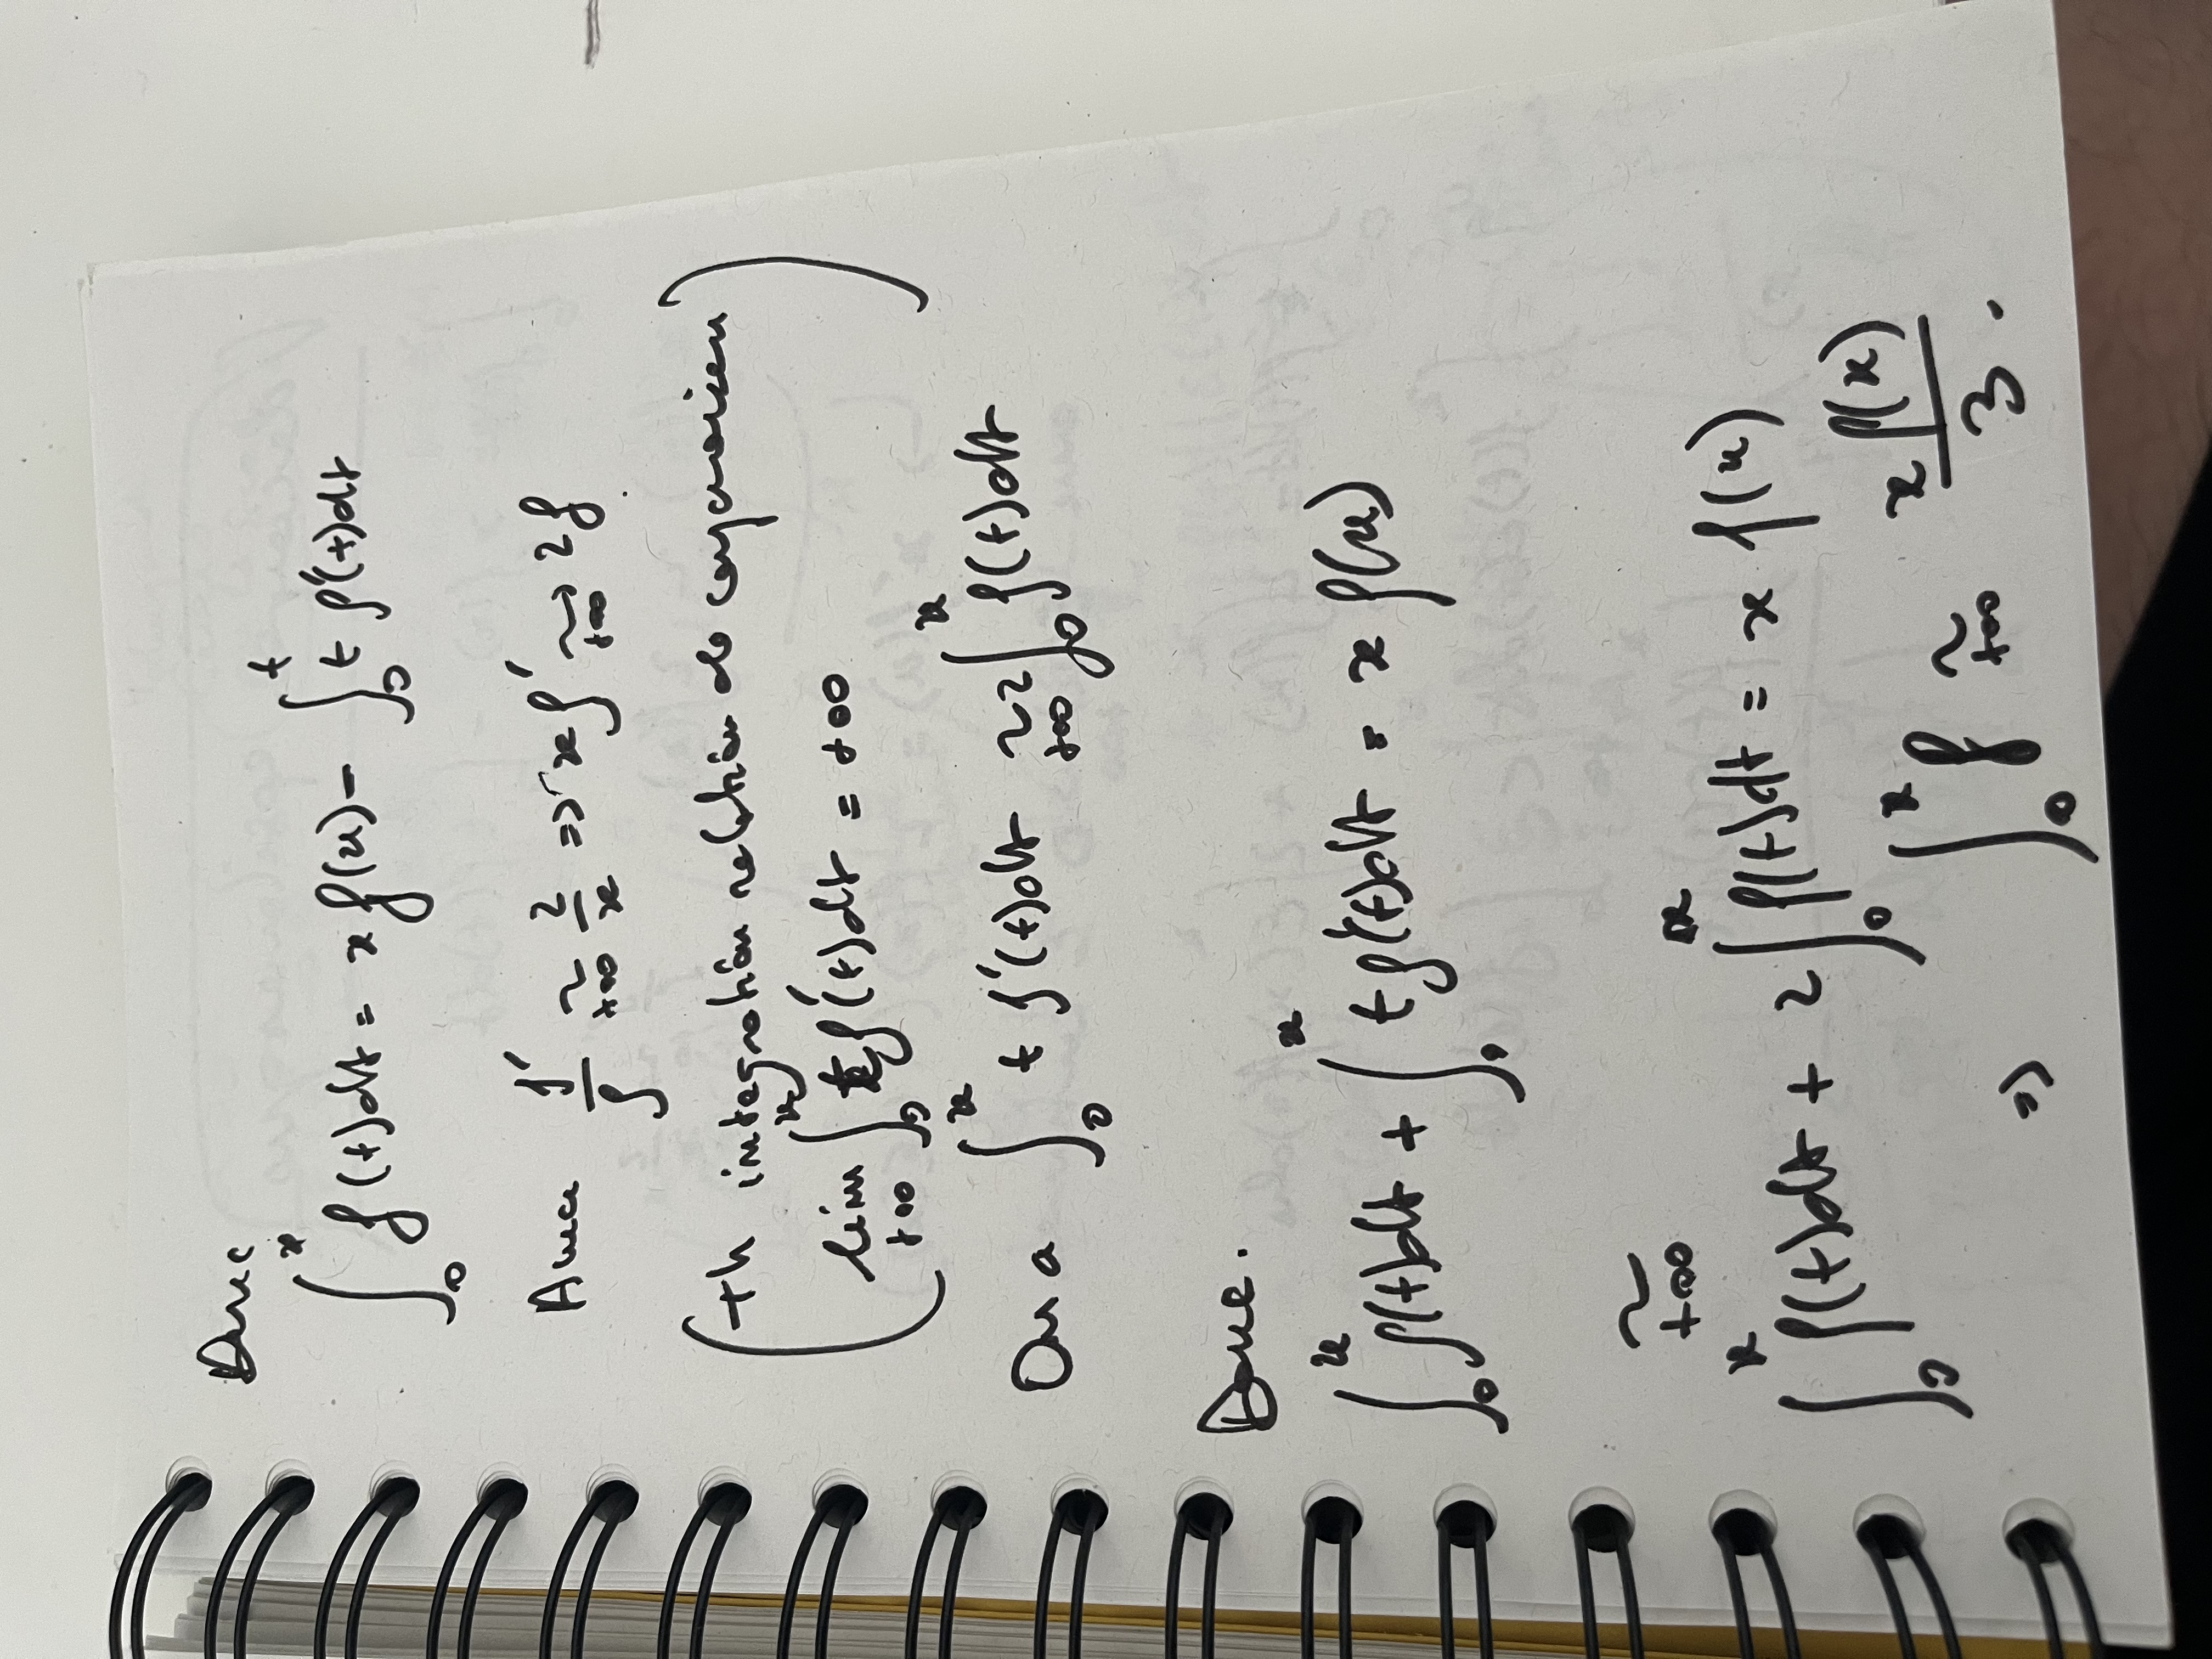 Donc
∫₀ˣ f(t)dt = x f(x) - ∫₀ᵗ t f'(t)dt
Avec f'/f ~₊∞ 2/x => x f' ~₊∞ 2f
(th intégration relation de comparaison
lim₊∞ ∫₀ˣ t f'(t)dt = +∞)
On a ∫₀ˣ t f'(t)dt ~₊∞ 2∫₀ˣ f(t)dt
Donc.
∫₀ˣ f(t)dt + ∫₀ˣ t f'(t)dt = x f(x)
~₊∞
∫₀ˣ f(t)dt + 2∫₀ˣ f(t)dt = x f(x)
=> ∫₀ˣ f ~₊∞ x f(x)/3 .